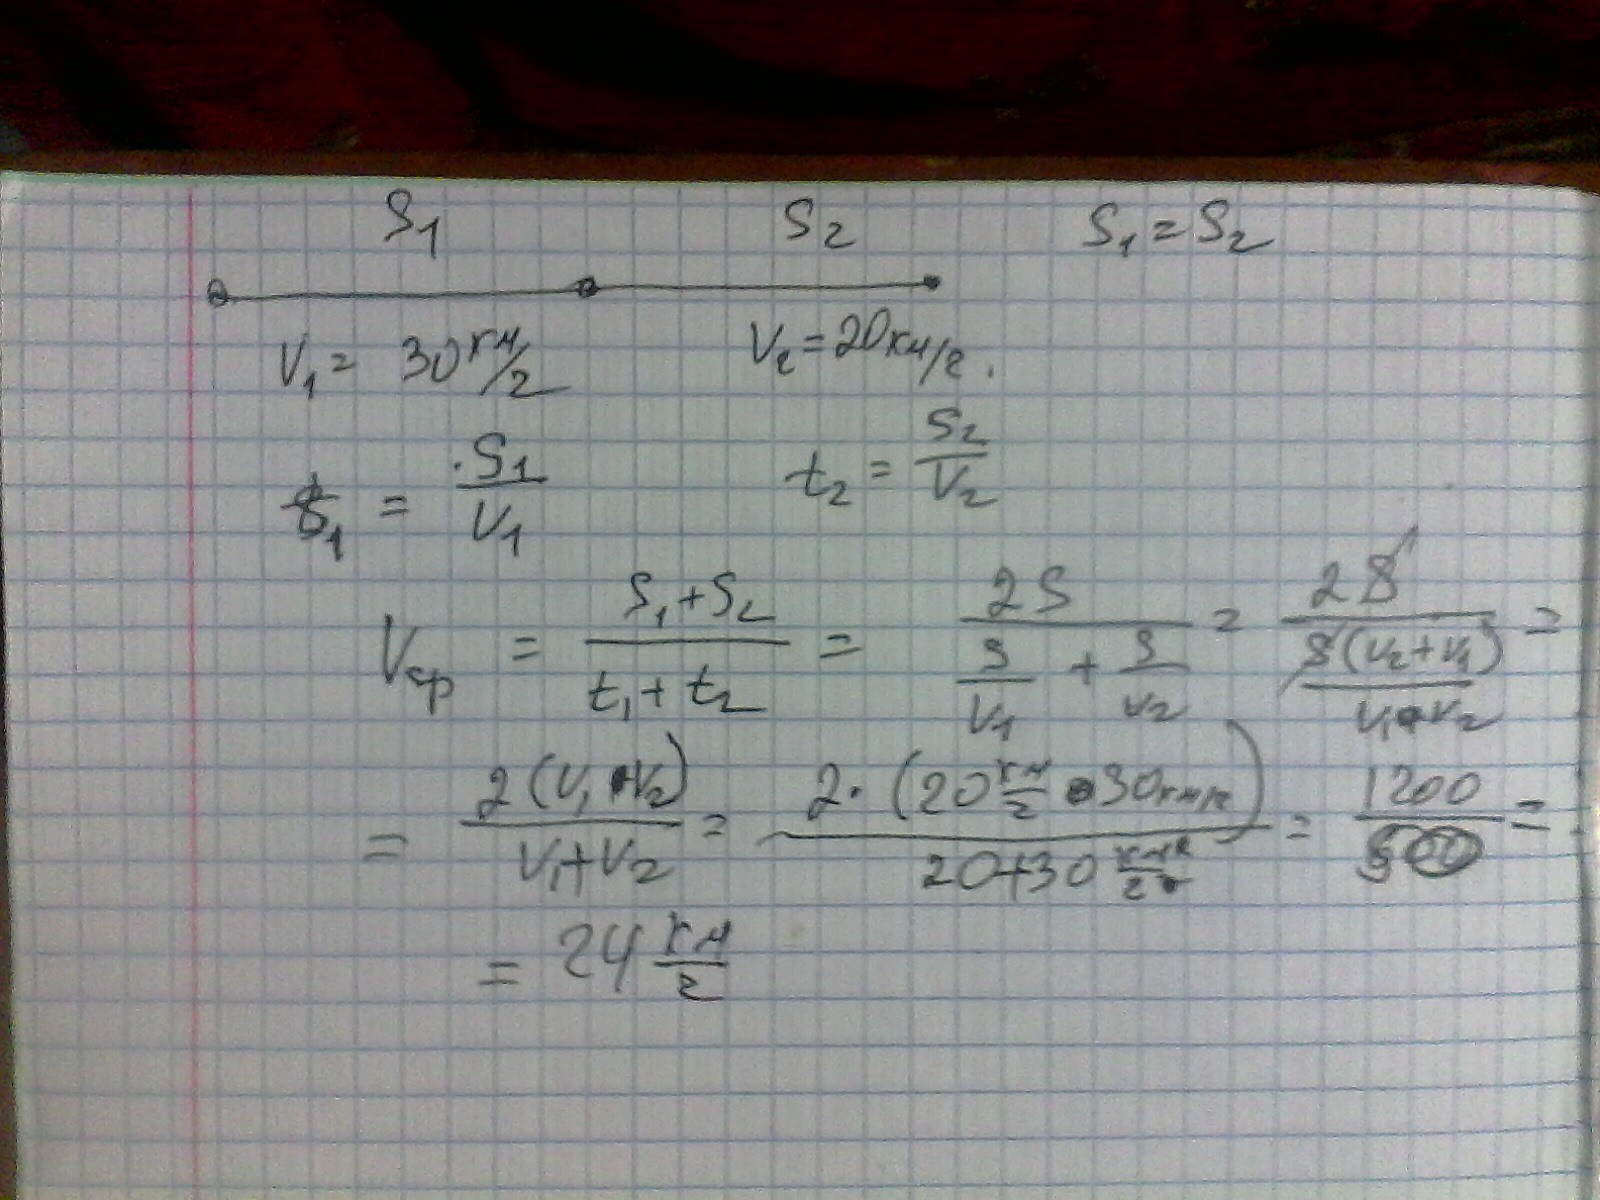 S₁ S₂ S₁ = S₂
V₁ = 30 км/г V₂ = 20 км/г.
t₁ = S₁/V₁ t₂ = S₂/V₂
Vср = (S₁+S₂)/(t₁+t₂) = 2S/(S/V₁ + S/V₂) = 2S/(S(V₂+V₁)/(V₁•V₂)) =
= 2(V₁•V₂)/(V₁+V₂) = 2·(20 км/г • 30 км/г)/(20+30 км/г) = 1200/50 =
= 24 км/г